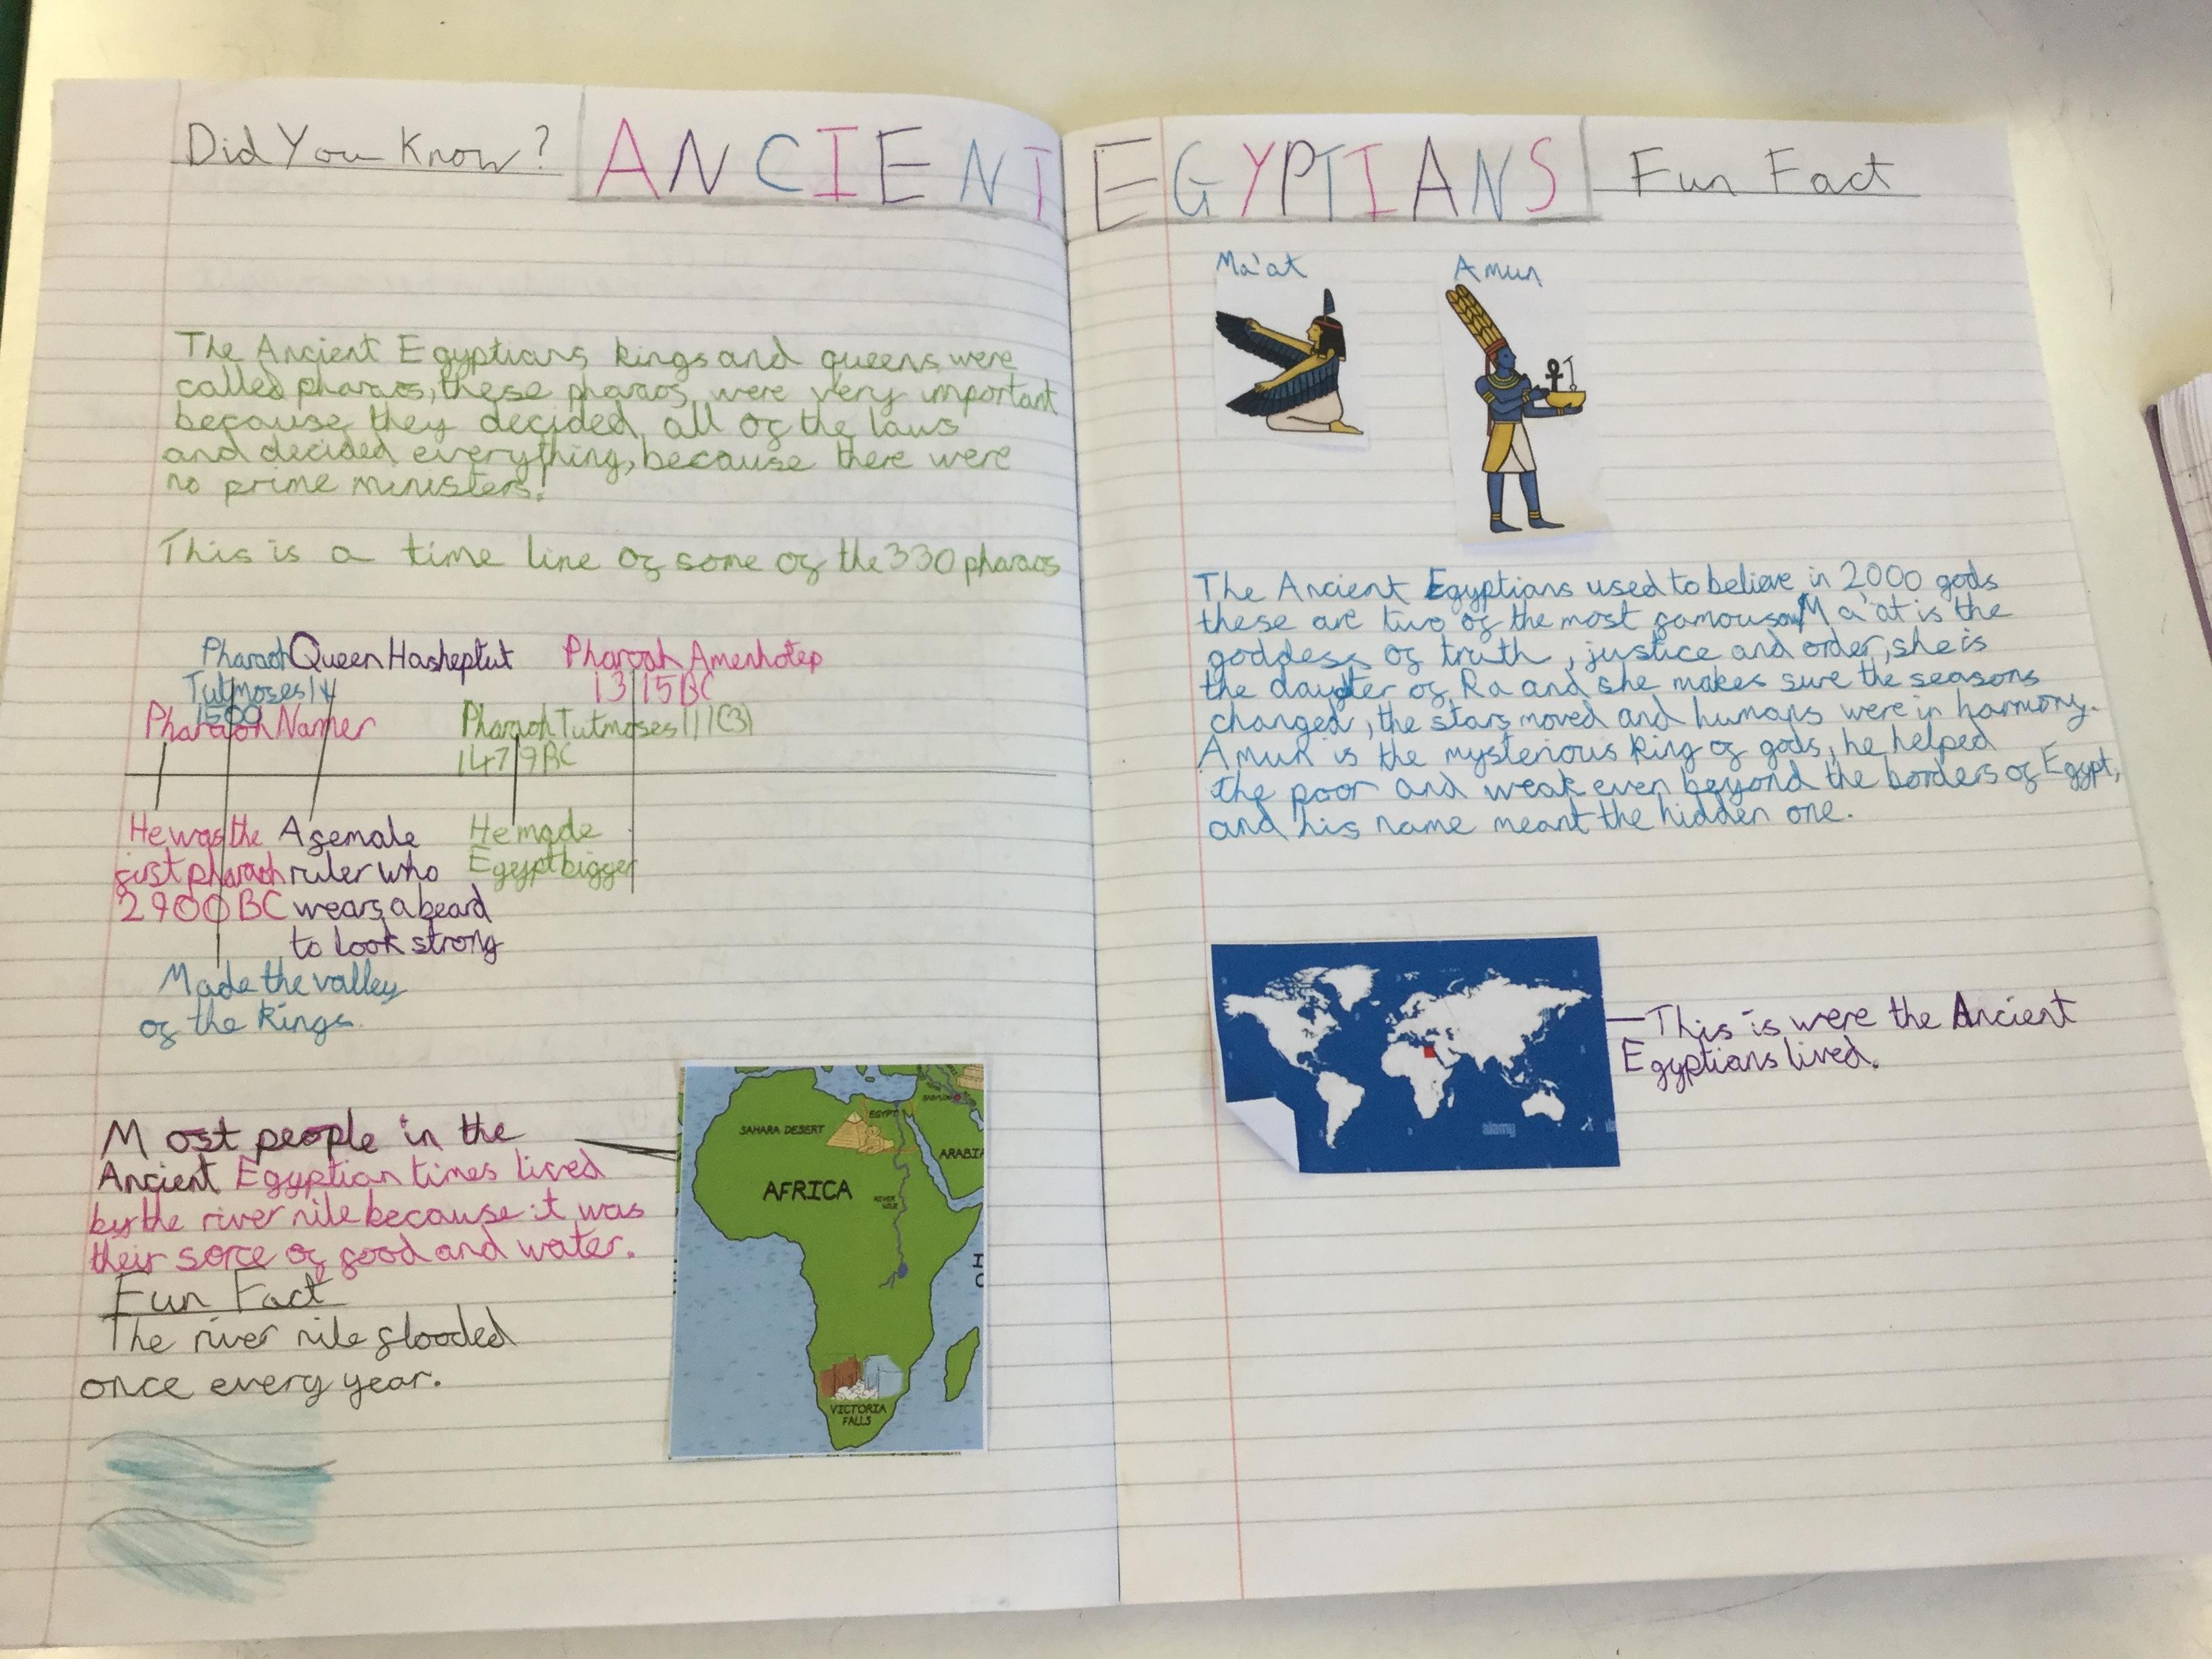 Did You Know?
ANCIENT EGYPTIANS
Fun Fact
The Ancient Egyptians kings and queens were
called pharaos, these pharaos were very important
because they decided all of the laws
and decided everything, because there were
no prime ministers!
This is a time line of some of the 330 pharaos
Pharaoh
Tutmoses
Queen Hasheptut
Pharoah Amenhotep
1315BC
Pharaoh Namer
Pharaoh Tutmoses 111(3)
1479BC
He was the
first pharaoh
2900 BC
A female
ruler who
wears a beard
to look strong
He made
Egeypt bigger
Made the valley
of the Kings.
Most people in the
Ancient Egyptian times lived
by the river nile because it was
their sorce of food and water.
Fun Fact
The river nile flooded
once every year.
EGYPT
BABYLON
SAHARA DESERT
ARABIA
AFRICA
RIVER
NILE
I
VICTORIA
FALLS
Ma'at
Amun
The Ancient Egyptians used to believe in 2000 gods
these are two of the most famous Ma'at is the
goddess of truth, justice and order, she is
the daugter of Ra and she makes sure the seasons
changed, the stars moved and humans were in harmony.
Amun is the mysterious king of gods, he helped
the poor and weak even beyond the borders of Egypt,
and his name meant the hidden one.
alamy
This is were the Ancient
Egyptians lived.